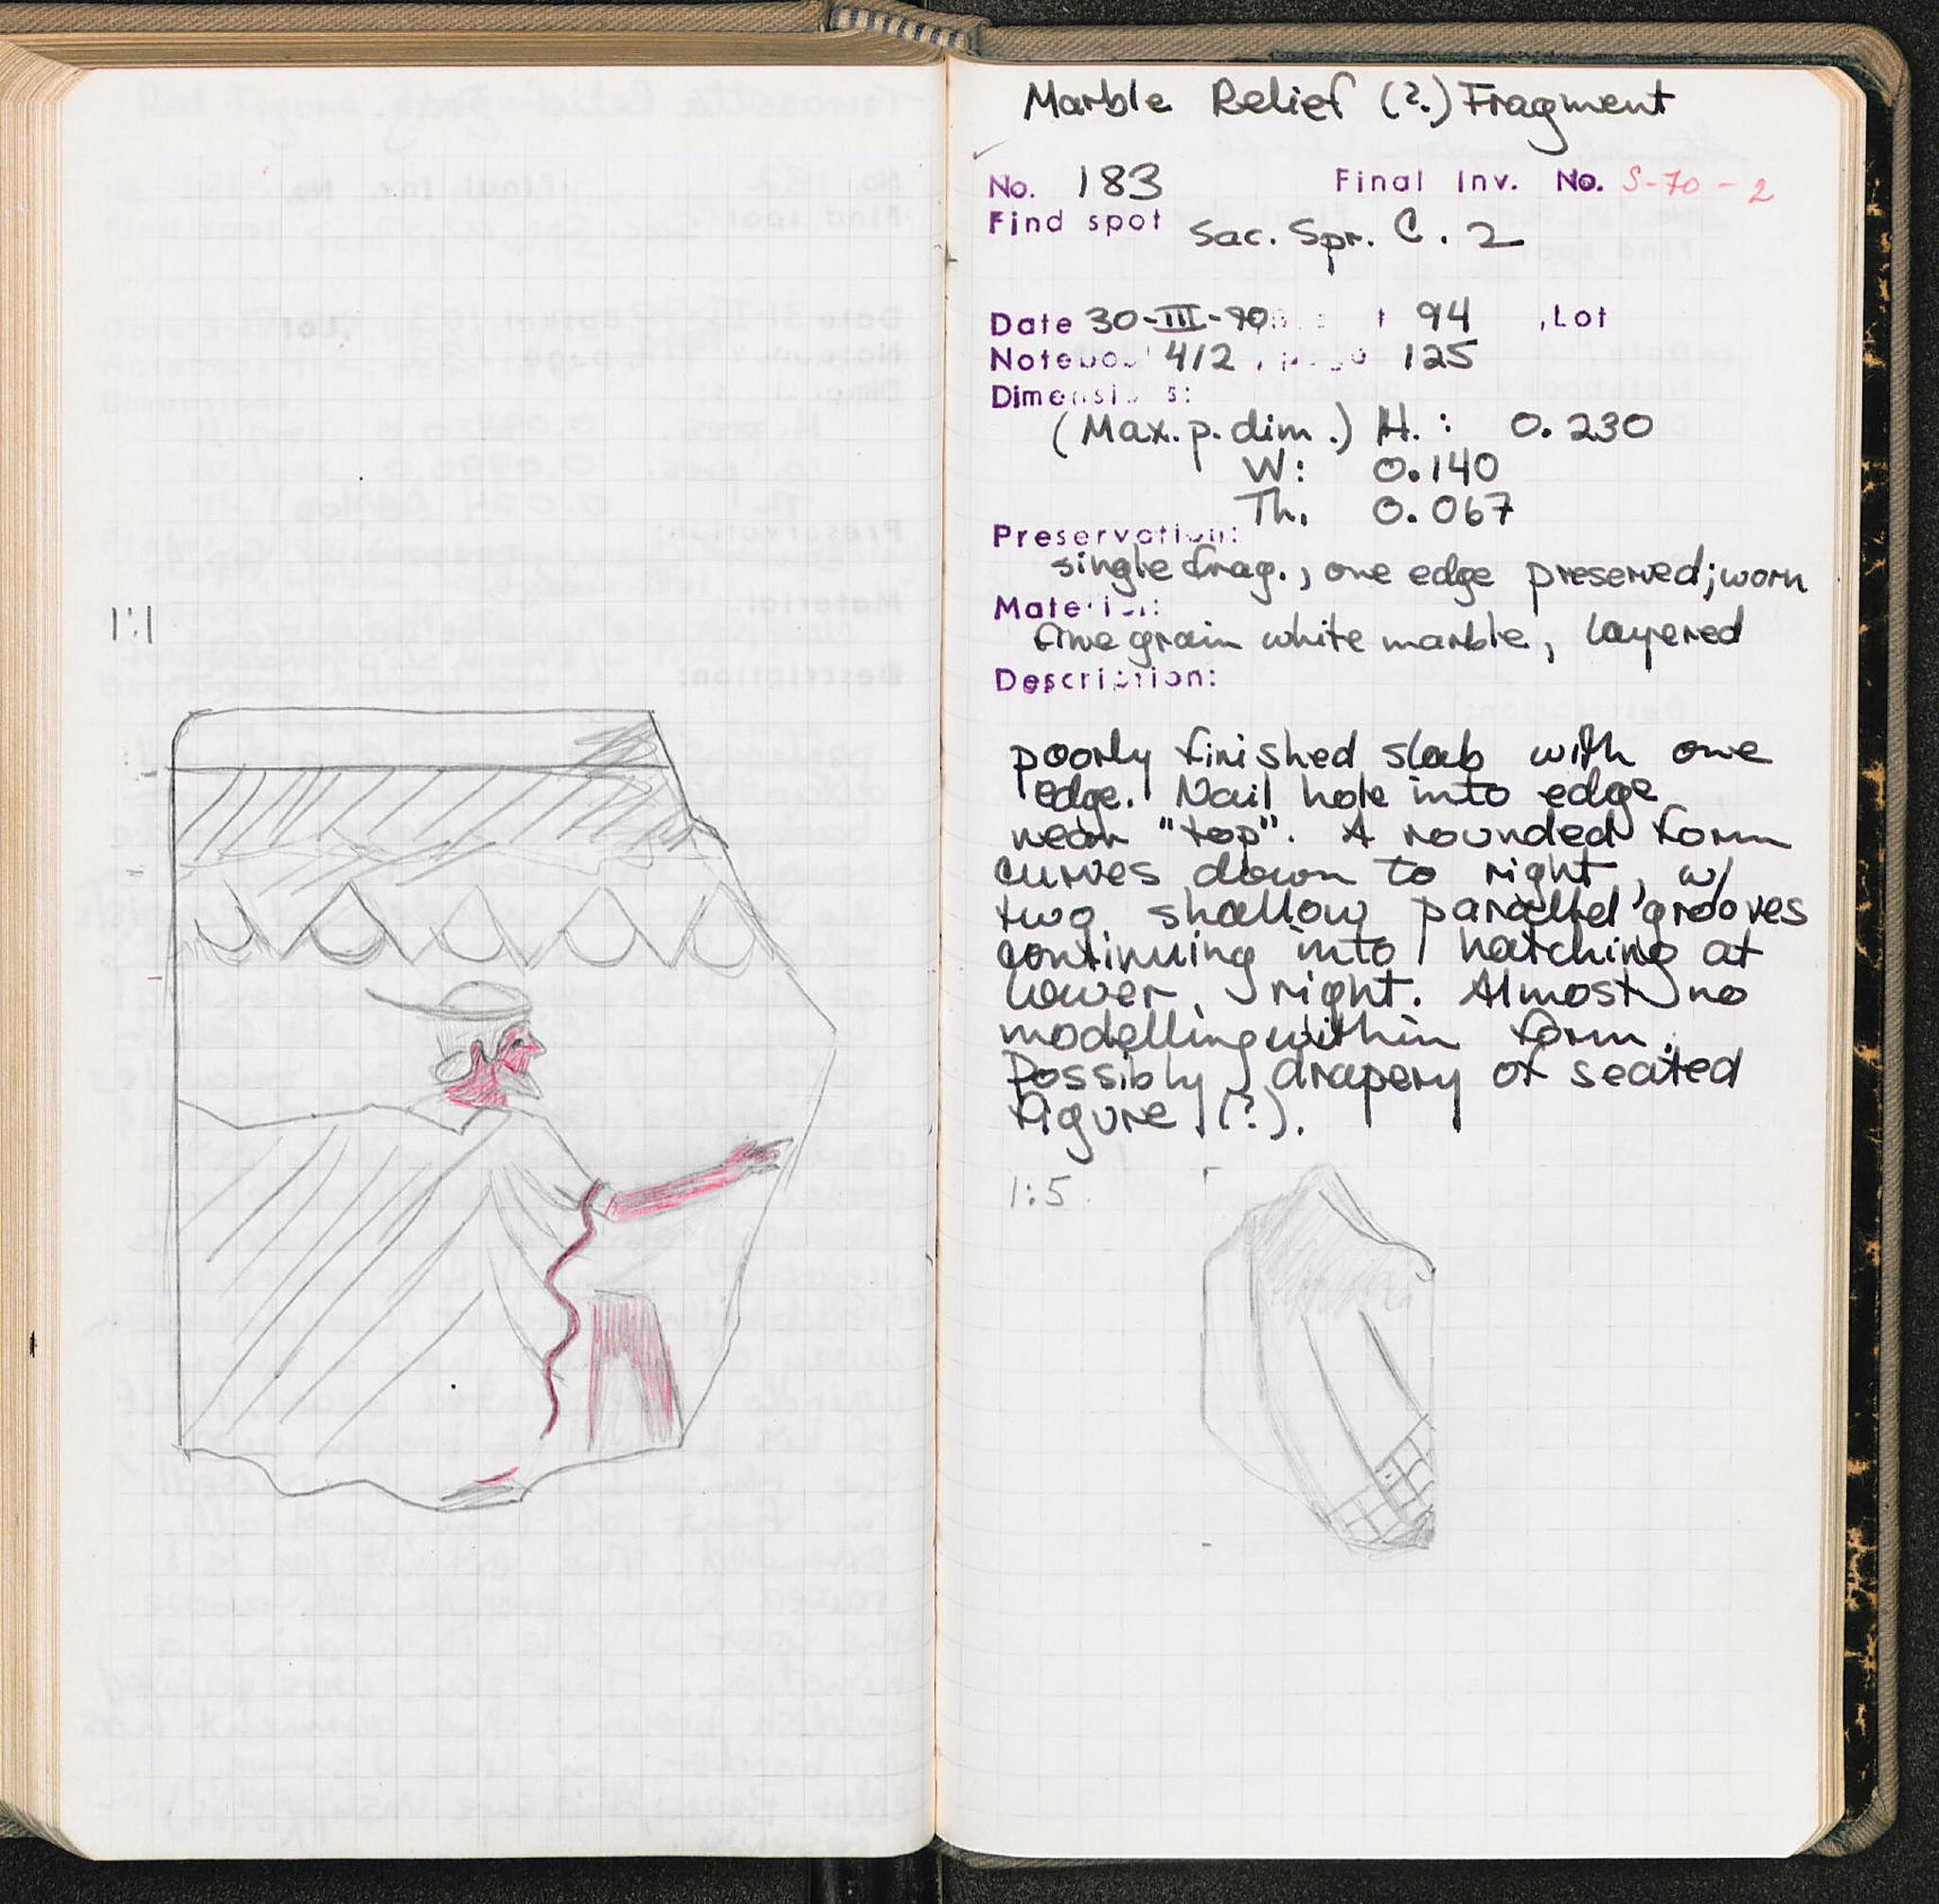 1:1
Marble Relief (?) Fragment
No. 183 Final Inv. No. S-70-2
Find spot Sac. Spr. C. 2
Date 30-III-70 94 , Lot
412 , 125
(Max. p. dim.) H. : 0.230
W: 0.140
Th. 0.067
Preservation:
single frag., one edge preserved; worn
fine grain white marble, layered
Description:
poorly finished slab with one
edge. Nail hole into edge
near "top". A rounded form
curves down to right, w/
two shallow parallel grooves
continuing into hatching at
lower right. Almost no
modelling within form.
Possibly drapery of seated
figure (?).
1:5